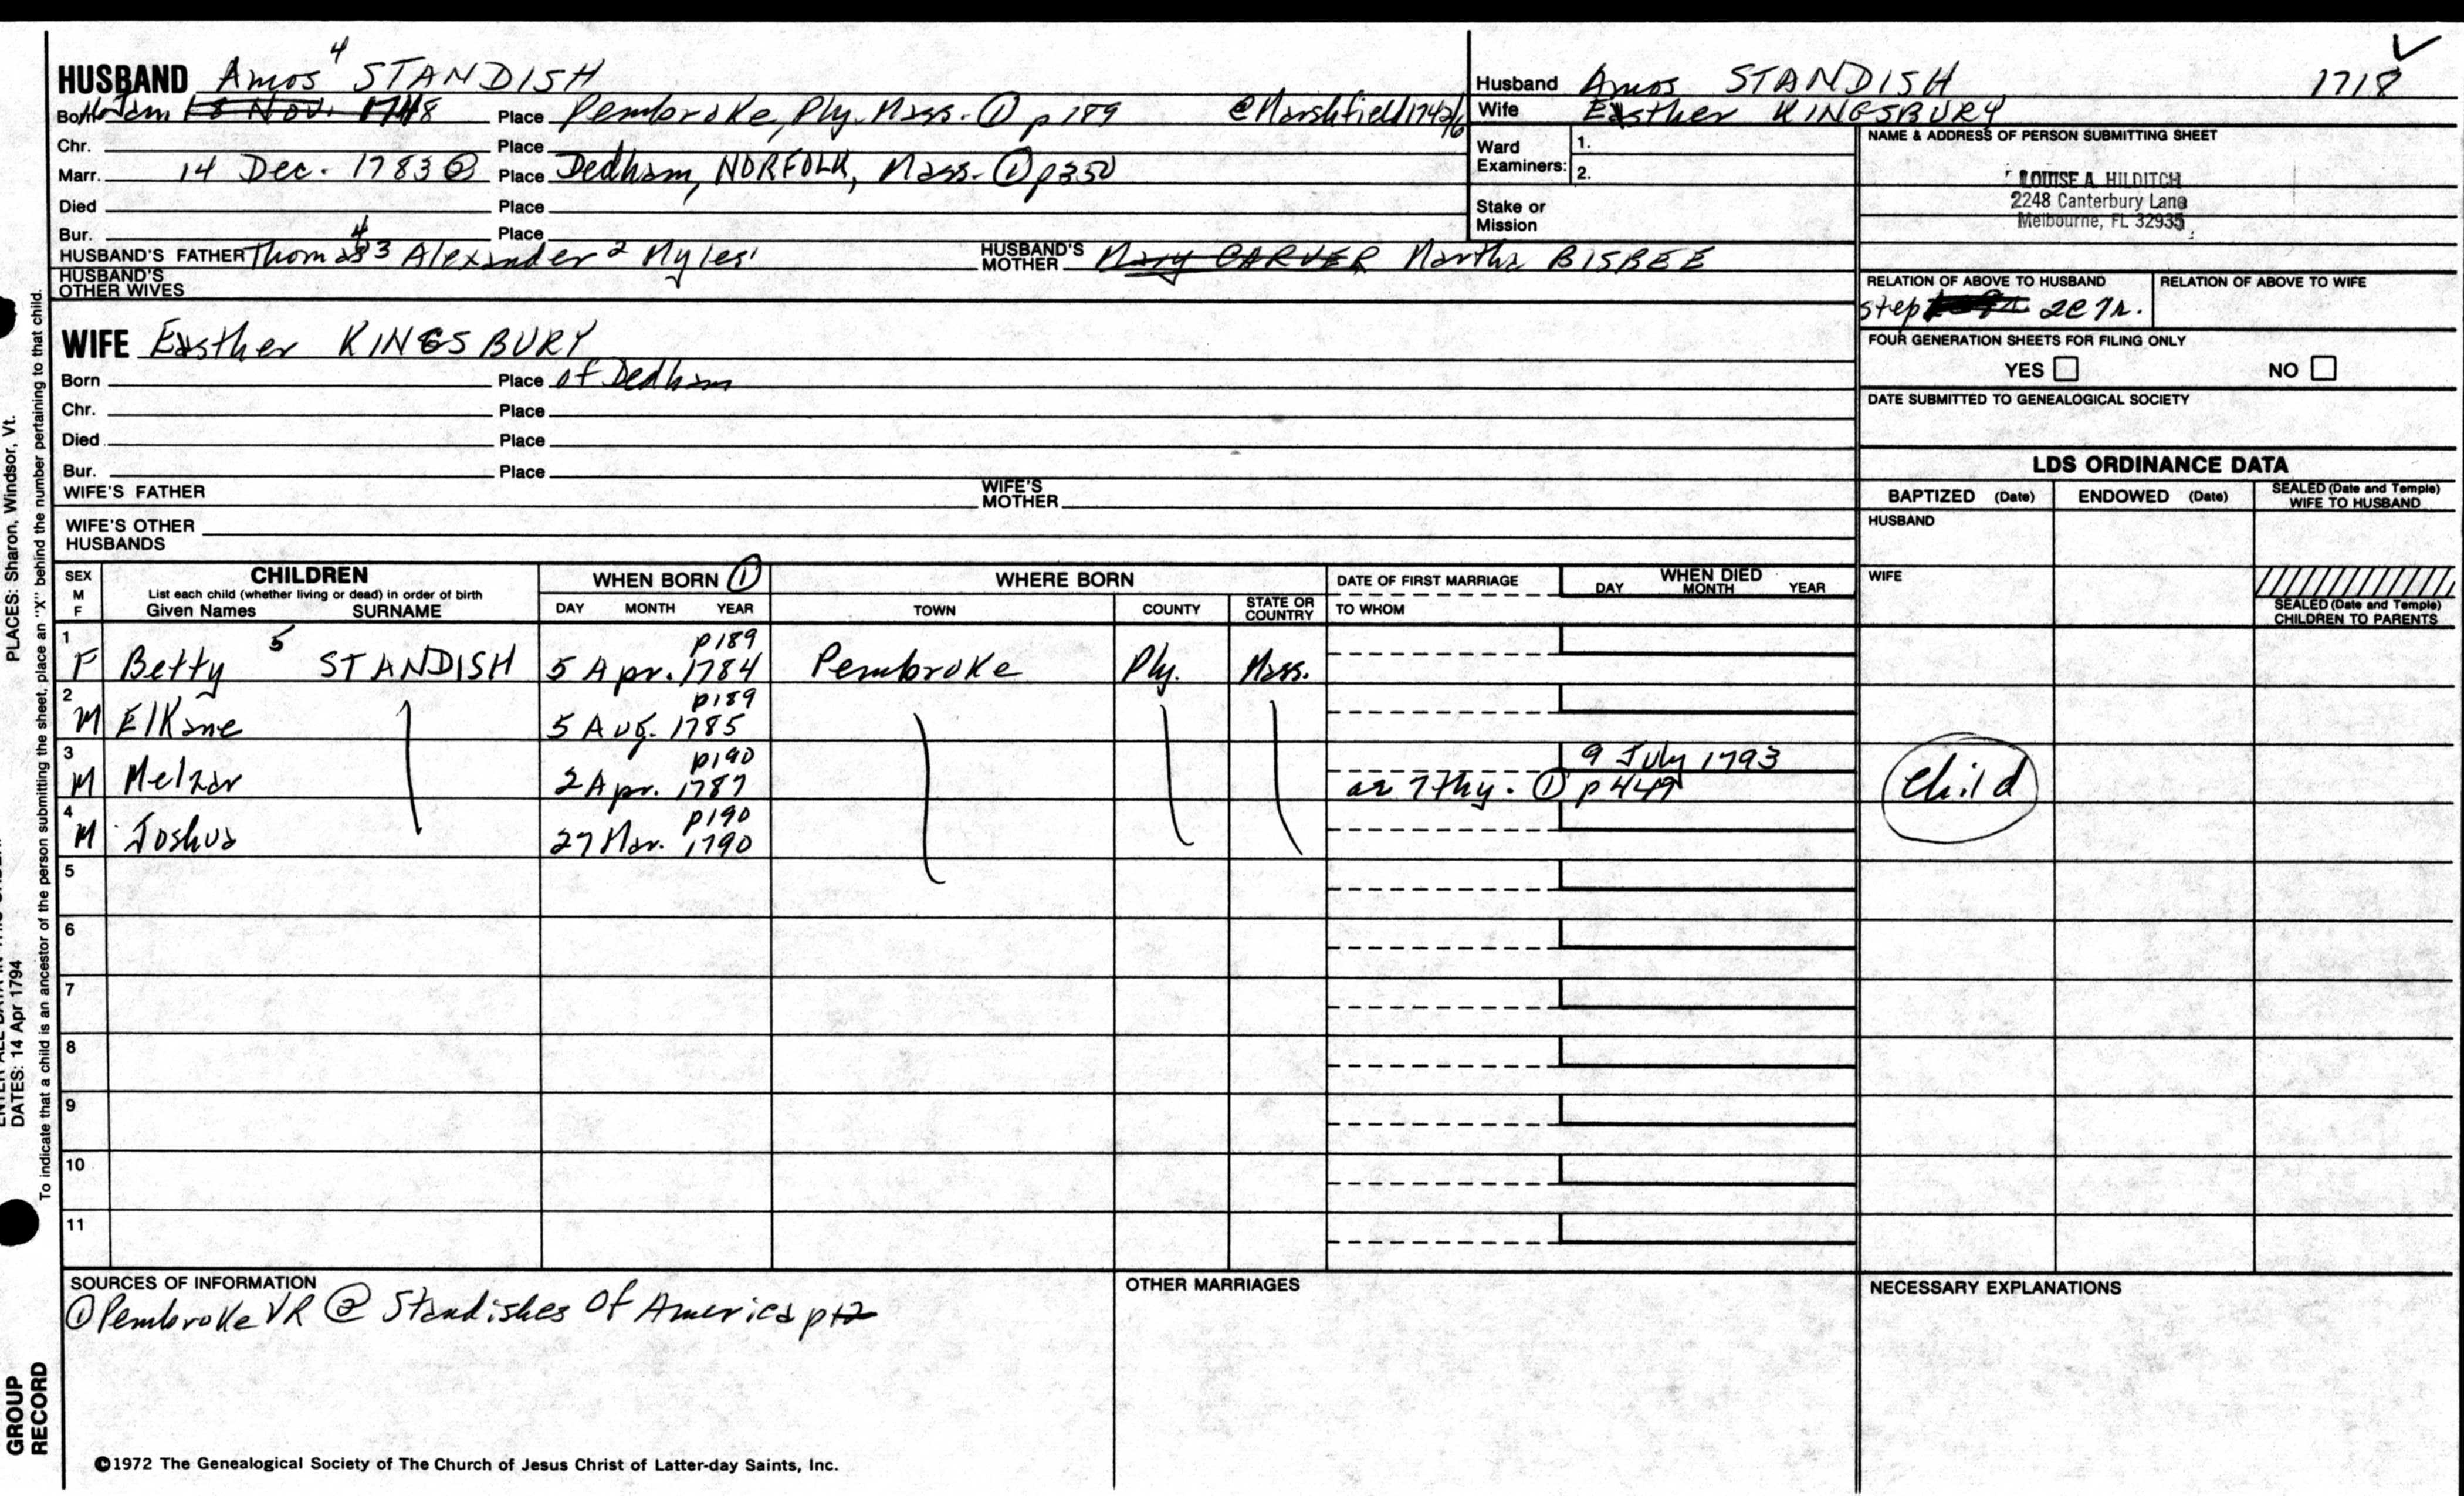 HUSBAND Amos 4 STANDISH
Born Place Pembroke, Ply. Mass. ① p 189 @Marshfield
Chr. Place
Marr. 14 Dec. 1783 ② Place Dedham, NORFOLK, Mass. ① p350
Died Place
Bur. Place
HUSBAND'S FATHER Thomas 4 3 Alexander 2 Myles 1 HUSBAND'S MOTHER Mary CARVER Martha BISBEE
HUSBAND'S OTHER WIVES
WIFE Esther KINGSBURY
Born Place of Dedham
Chr. Place
Died Place
Bur. Place
WIFE'S FATHER WIFE'S MOTHER
WIFE'S OTHER HUSBANDS
Husband Amos STANDISH 1718
Wife Esther KINGSBURY
Ward Examiners: 1.
2.
Stake or Mission
NAME & ADDRESS OF PERSON SUBMITTING SHEET
LOUISE A. HILDITCH
2248 Canterbury Lane
Melbourne, FL 32935
RELATION OF ABOVE TO HUSBAND RELATION OF ABOVE TO WIFE
step 2c7r.
FOUR GENERATION SHEETS FOR FILING ONLY
YES NO
DATE SUBMITTED TO GENEALOGICAL SOCIETY
LDS ORDINANCE DATA
BAPTIZED (Date) ENDOWED (Date) SEALED (Date and Temple) WIFE TO HUSBAND
HUSBAND
WIFE
SEALED (Date and Temple) CHILDREN TO PARENTS
SEX M F CHILDREN
List each child (whether living or dead) in order of birth
Given Names SURNAME
WHEN BORN ①
DAY MONTH YEAR
WHERE BORN
TOWN COUNTY STATE OR COUNTRY
DATE OF FIRST MARRIAGE
TO WHOM
WHEN DIED
DAY MONTH YEAR
1 p189
F Betty 5 STANDISH 5 Apr. 1784 Pembroke Ply. Mass.
2 p189
M Elkane 5 Aug. 1785
3 p190 9 July 1793
M Melzar 2 Apr. 1787 ae 7thy. ① p449 Child
4 p190
M Joshua 27 Mar. 1790
5
6
7
8
9
10
11
SOURCES OF INFORMATION
① Pembroke VR ② Standishes Of America
OTHER MARRIAGES
NECESSARY EXPLANATIONS
©1972 The Genealogical Society of The Church of Jesus Christ of Latter-day Saints, Inc.
PLACES: Sharon, Windsor, Vt.
DATES: 14 Apr 1794
To indicate that a child is an ancestor of the person submitting the sheet, place an "X" behind the number pertaining to that child.
GROUP
RECORD